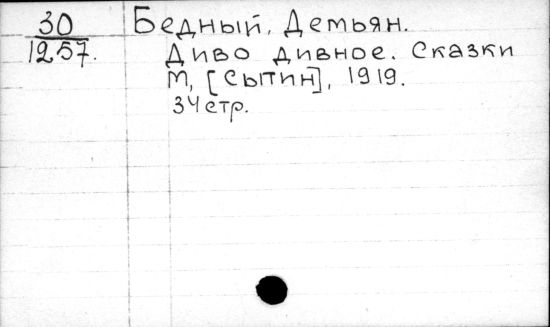 30
1257.
Бедный, Демьян.
Диво дивное. Сказки
М, [Сытин], 1919.
34 стр.